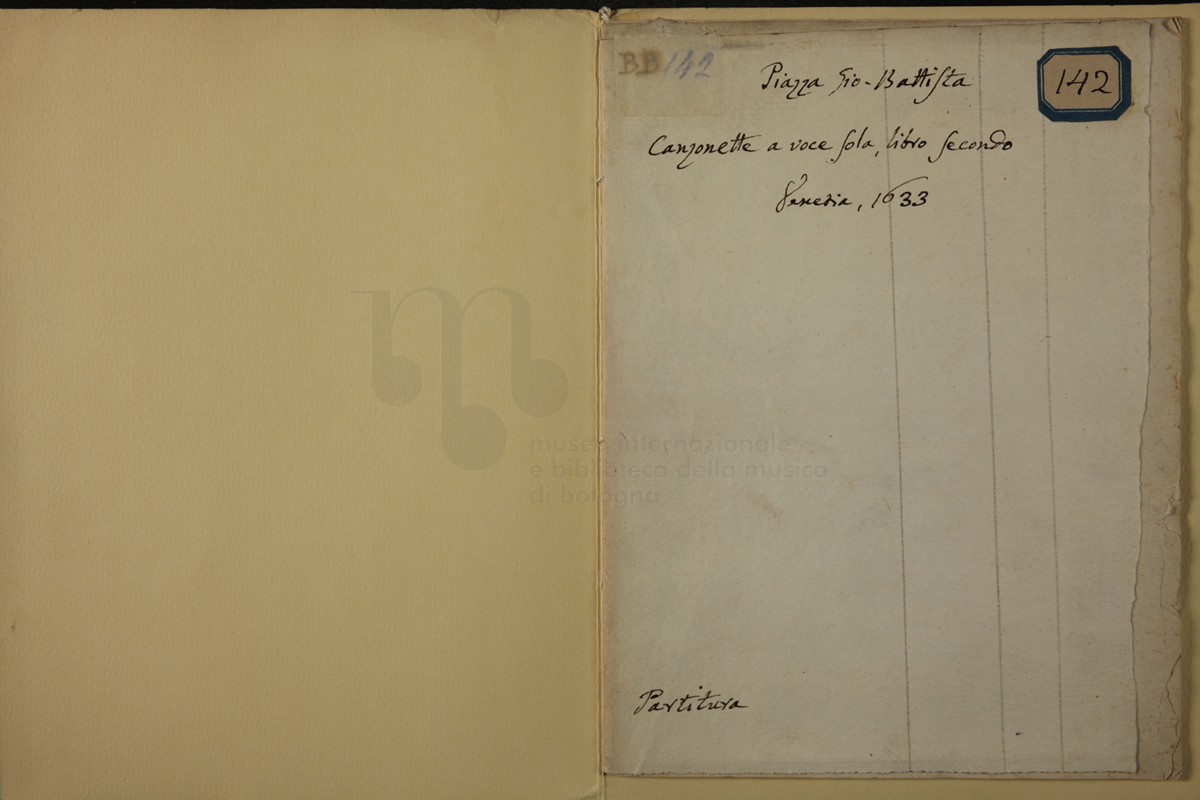 BB 142
142
Piazza Gio-Battista
Canzonette a voce sola, libro secondo
Venezia, 1633
museo internazionale
e biblioteca della musica
di bologna
Partitura